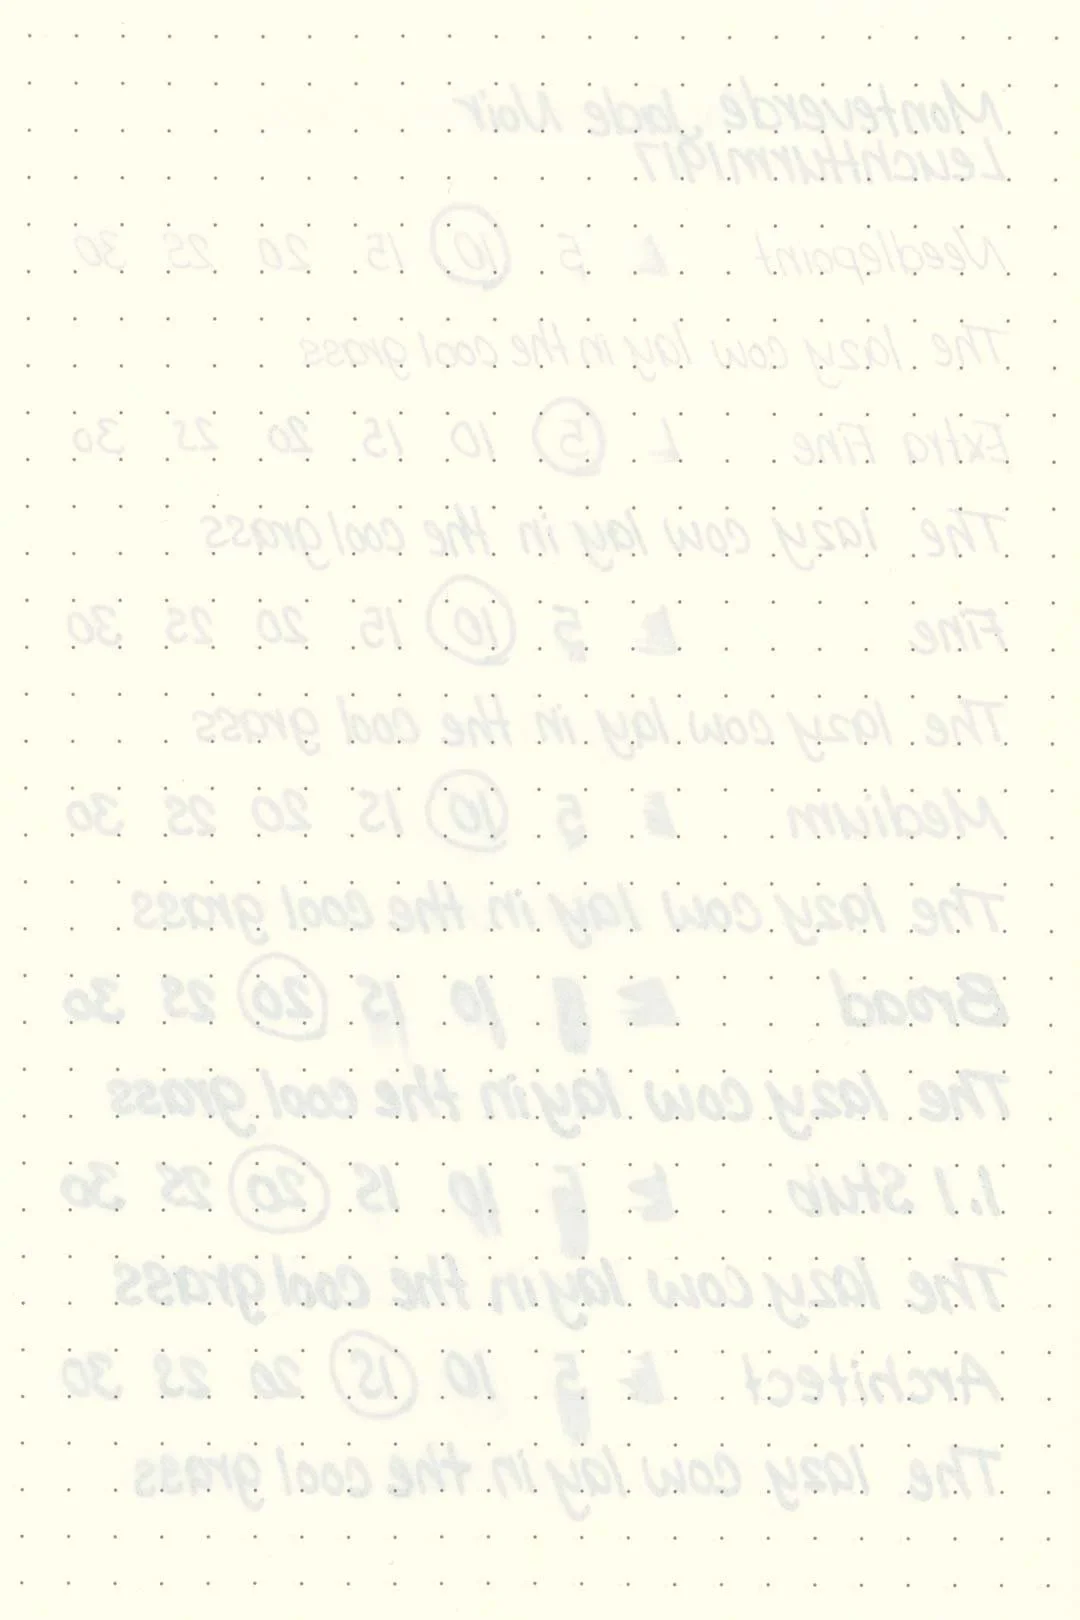 Monteverde Jade Noir
Leuchtturm1917
Needlepoint L 5 10 15 20 25 30
The lazy cow lay in the cool grass
Extra Fine L 5 10 15 20 25 30
The lazy cow lay in the cool grass
Fine L 5 10 15 20 25 30
The lazy cow lay in the cool grass
Medium L 5 10 15 20 25 30
The lazy cow lay in the cool grass
Broad L 5 10 15 20 25 30
The lazy cow lay in the cool grass
1.1 Stub L 5 10 15 20 25 30
The lazy cow lay in the cool grass
Architect L 5 10 15 20 25 30
The lazy cow lay in the cool grass